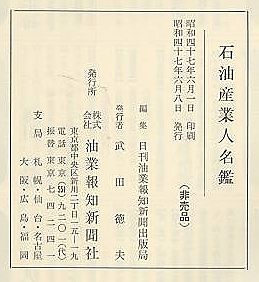 石油産業人名鑑
昭和四十七年六月一日 印刷
昭和四十七年六月八日 発行
(非売品)
編集 日刊油業報知新聞出版局
発行者 武田徳夫
発行所 株式会社 油業報知新聞社
東京都中央区新川二丁目一五―一九
電話 東京(551)九二〇一(代)
振替 東京七四二四一
支局 札幌・仙台・名古屋
大阪・広島・福岡